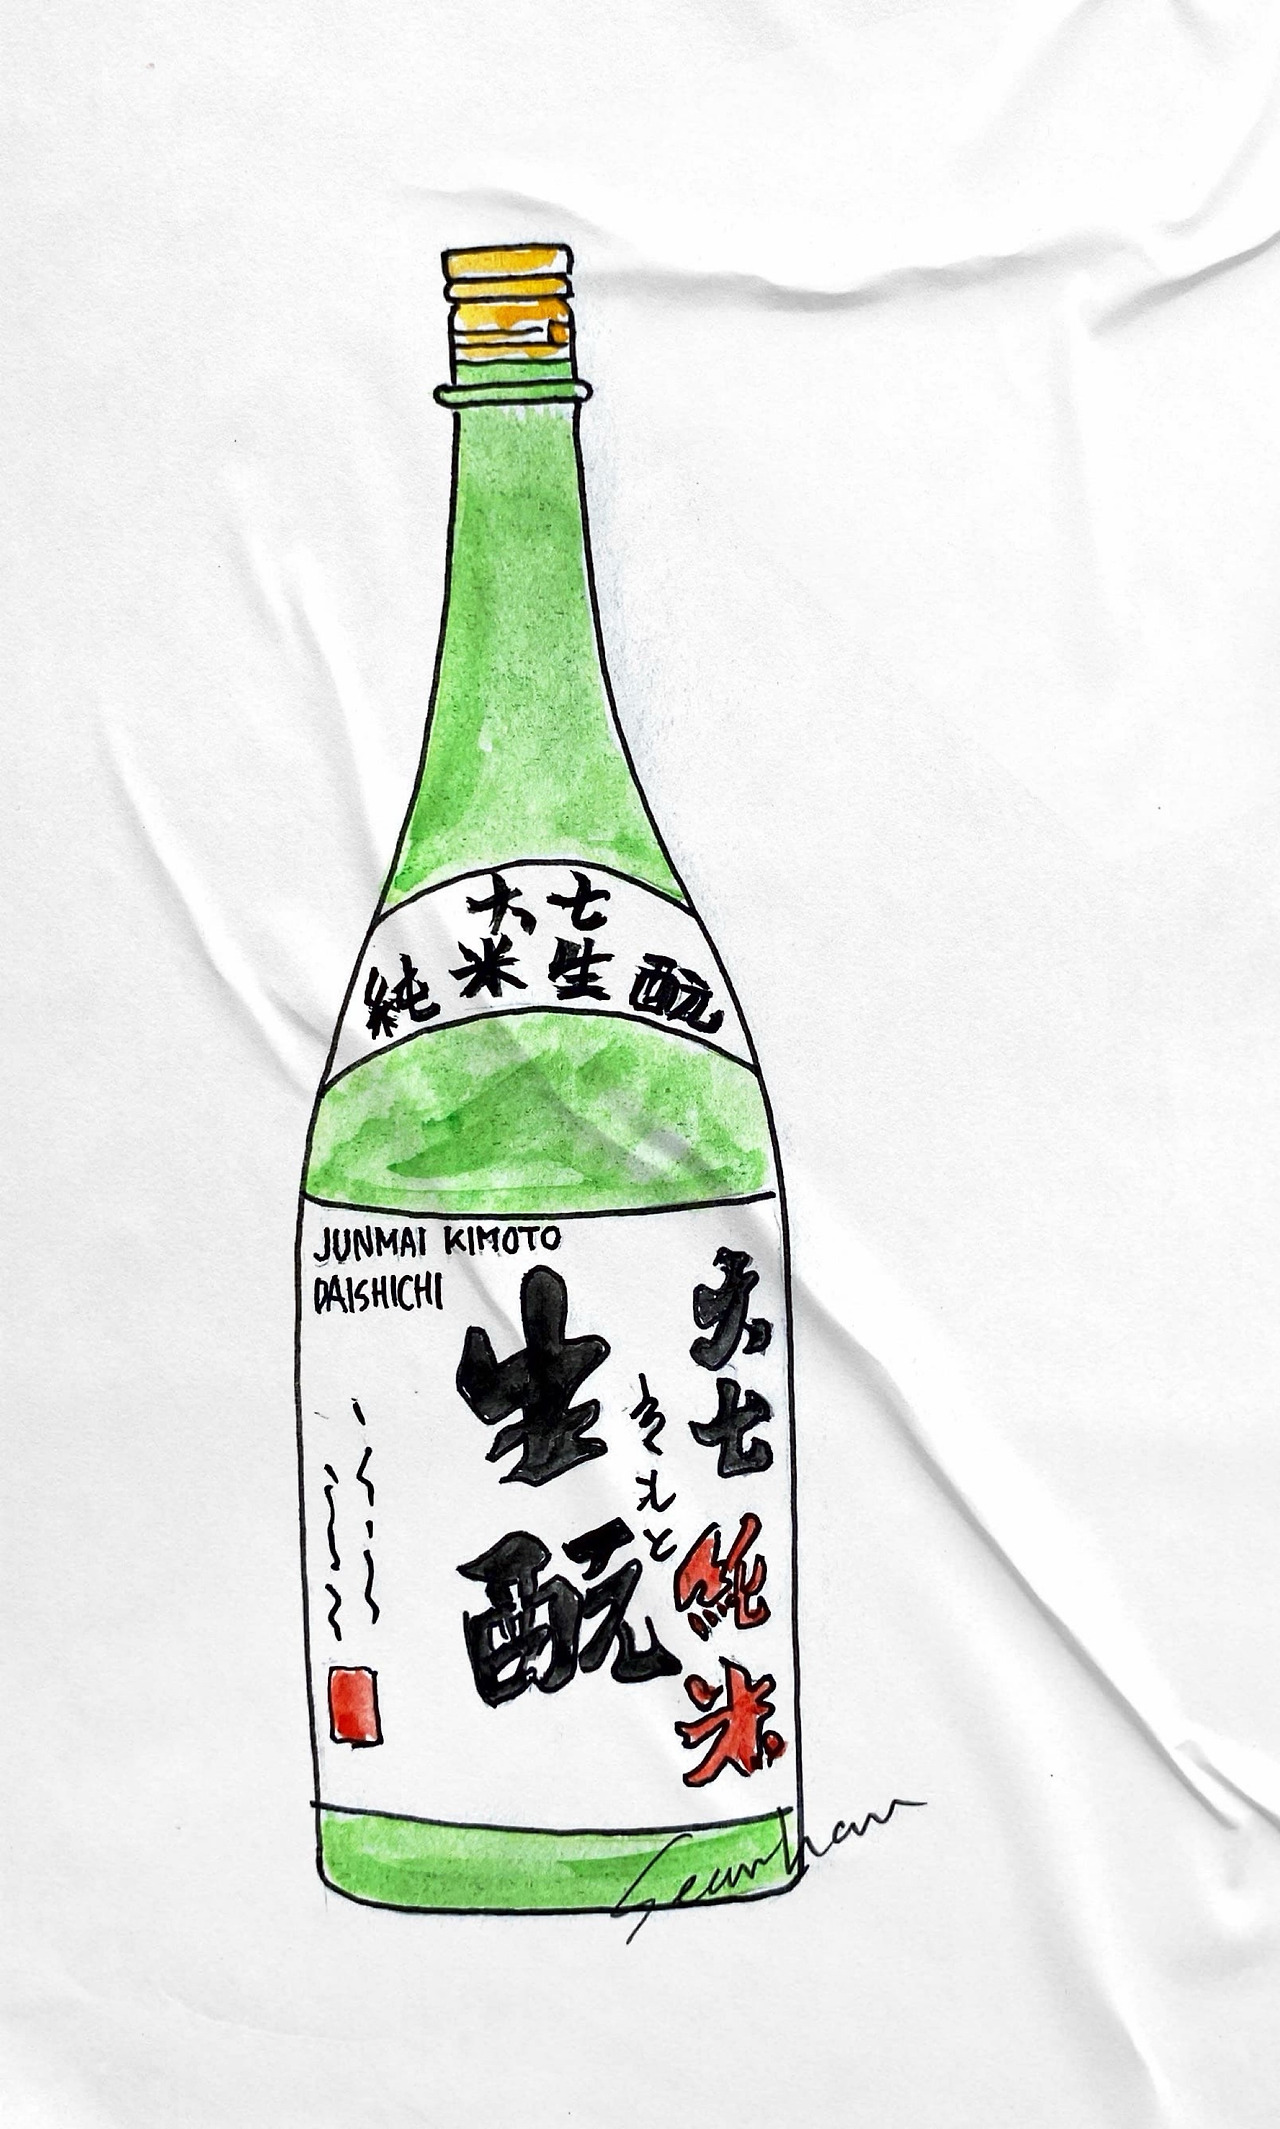 大七
純米生酛
JUNMAI KIMOTO
DAISHICHI
大七純米
きもと
生酛